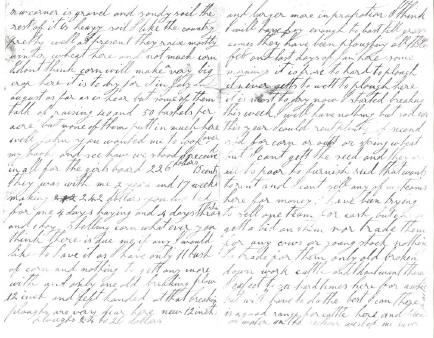 corner is gravel and sandy soil the
rest of it is heavy soil I like the country
pretty well at present they race mostly
winter wheat here and not much corn
I don't think corn will make very big
crop here it is to dry for it in July
august so far as I hear but some of them
talk of raising 40 and 50 bushels per
acre but none of them putt in much here
well John you wanted me to look
my book and see how we stood I receive
in all for the girls board 226
they was with me 2 years and 17 weeks
making 242 dollars
for pre 4 days haying and 4 days
and choy shelling corn what ever you
think there is due me if any I would
like to have it as I have only 11 bush
of corn and nothing to get any more
with and only one old breaking plow
12 inch and left handed at that breaking
ploughs are very dear here new 12 inch
plough 22 to 26 dollars
and larger more in proportion I think
will have for enough to last till
comes they have been ploughing all
feb and last days of Jan here some
mornings it is froze to hard to plough
it never gets to wett to plough here
it is most to dry now I started breaking
this week will have nothing but sod corn
this year could rent plenty of second
sod for corn or oats or spring wheat
but I can't gett the seed and
is to poor to furnish seed that wants
to rent and I can't sell any of my teams
here for money I have been trying
to sell one team for cash but can't
get a bit on them nor trade them
for any cows or young stock nothing
to trade for them only old broken
down work cattle and I don't want them
I expect to za hard times here for awhile
but will have to do the best I can there
is a good range for cattle here and
or water on the section west of me